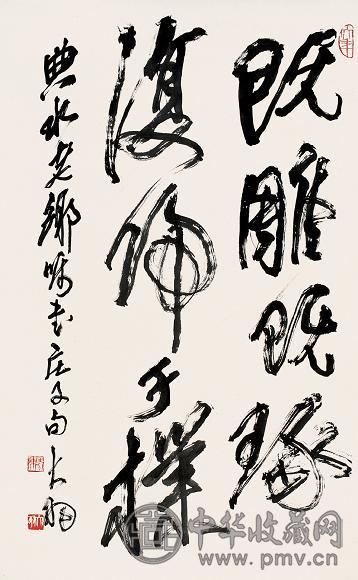 既雕既琢
復歸于樸
典水老鄉嘱书庄子句大
中华收藏网
www.pmv.cn